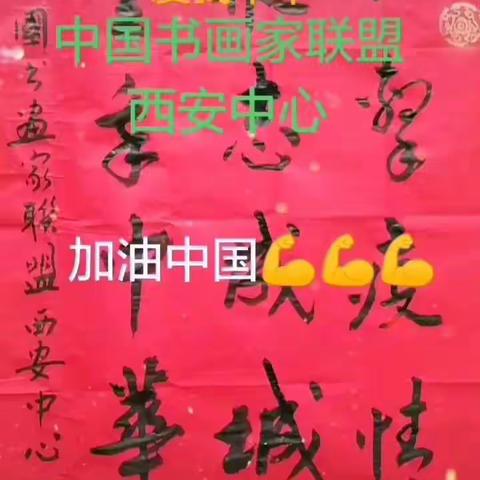 中国书画家联盟
西安中心
加油中国💪💪💪
疫情
志成城
中華
国书画家联盟西安中心